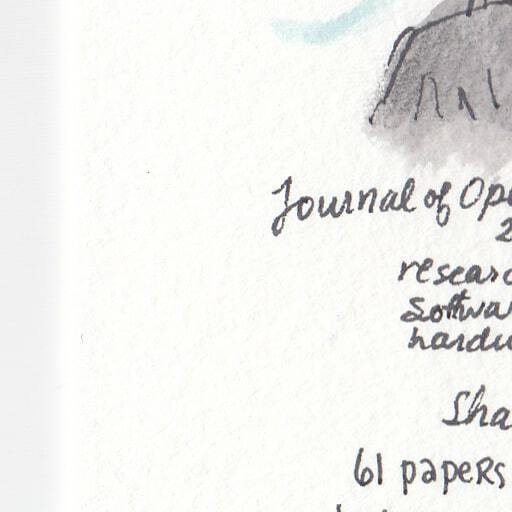 Journal of Ope
2
researc
Softwar
hardw
Sha
61 papers